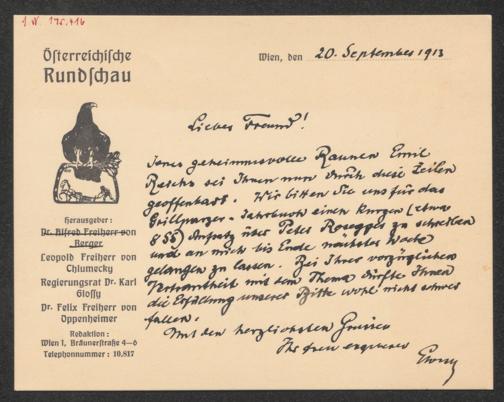 I.N. 175.416
Österreichische
Rundschau
Wien, den 20. September 1913
Herausgeber:
Dr. Alfred Freiherr von
Berger
Leopold Freiherr von
Chlumecky
Regierungsrat Dr. Karl
Glossy
Dr. Felix Freiherr von
Oppenheimer
Redaktion:
Wien I, Bräunerstraße 4—6
Telephonnummer: 10.817
Lieber Freund!
Jenes geheimnisvolle Raunen Emil
Reichs sei Ihnen nun durch diese Zeilen
geoffenbart. Wir bitten Sie uns für das
Grillparzer-Jahrbuch einen kurzen (etwa
8 SS) Aufsatz über Peter Rosegger zu schreiben
und an mich bis Ende nächster Woche
gelangen zu lassen. Bei Ihrer vorzüglichen
Vertrautheit mit dem Thema dürfte Ihnen
die Erfüllung unserer Bitte wohl nicht schwer
fallen.
Mit den herzlichsten Grüssen
Ihr treu ergebener
Glossy